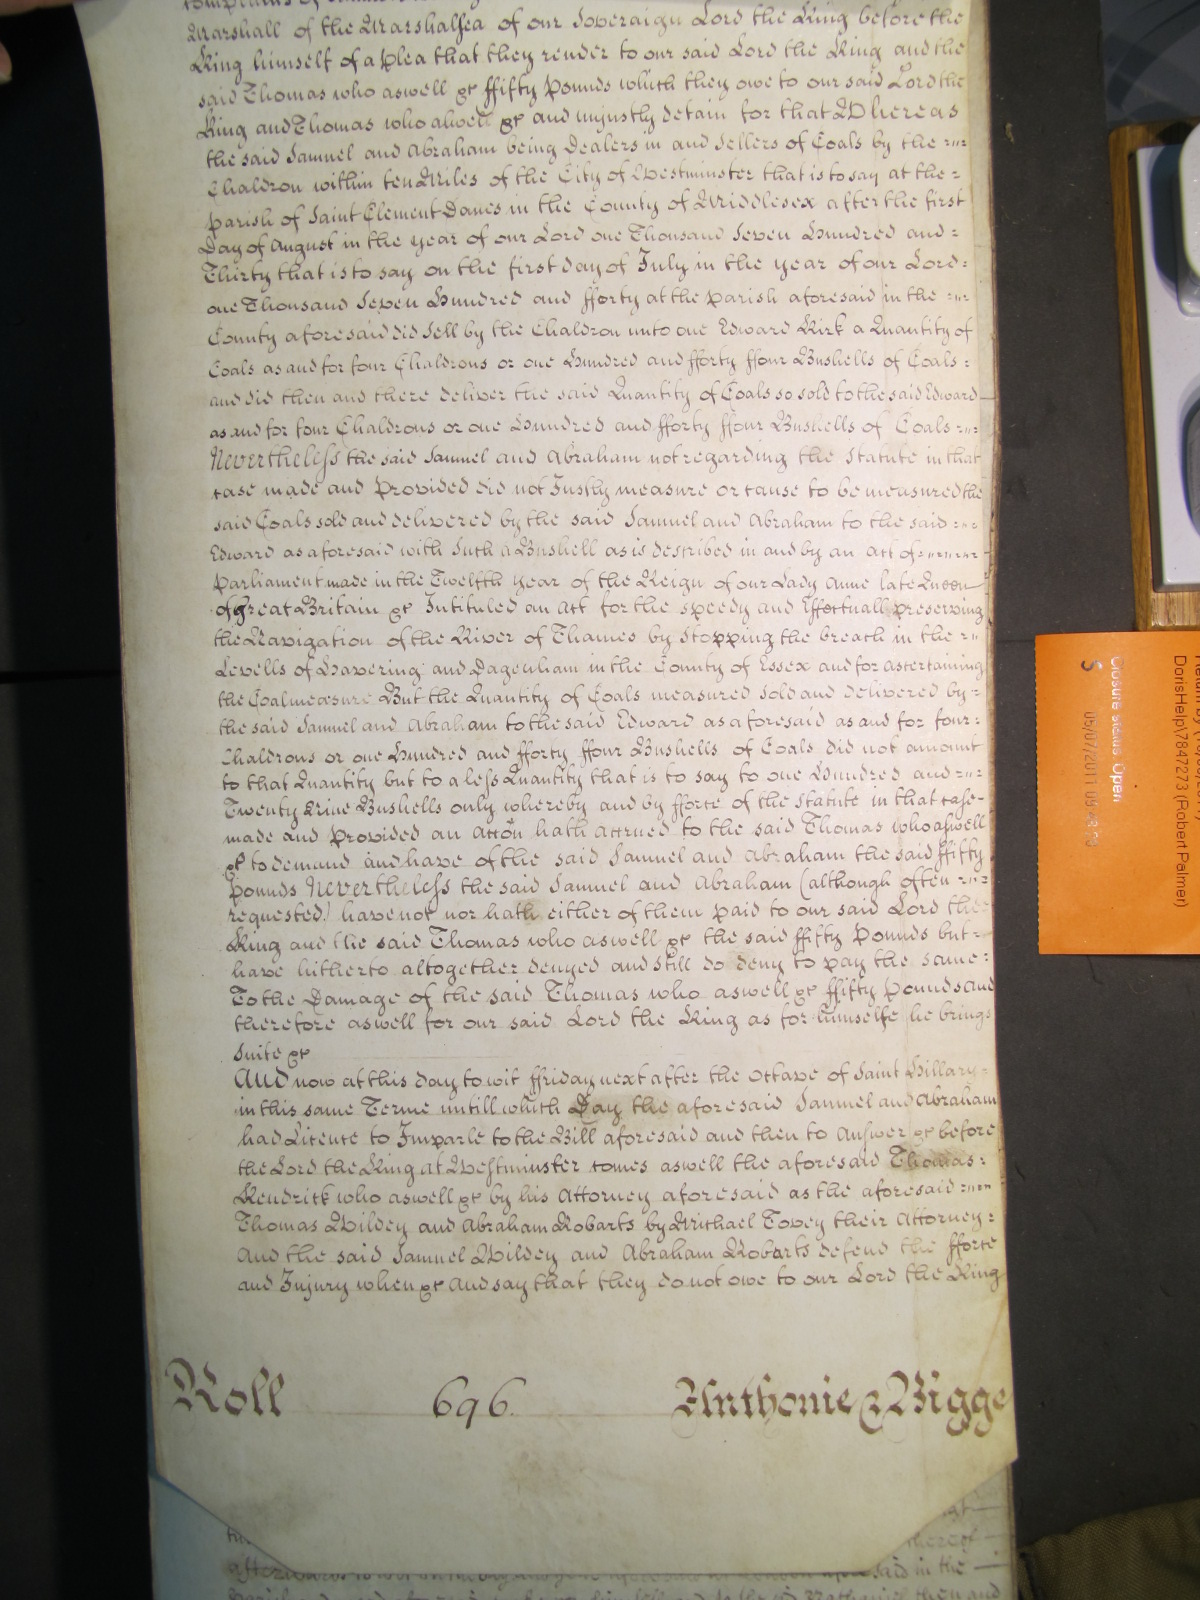 Complains of
Marshall of the Marshalsea of our Soveraign Lord the King before the
King himself of a plea that they render to our said Lord the King and the
said Thomas who aswell &c ffifty Pounds which they owe to our said Lord the
King and Thomas who aswell &c and unjustly detain for that Whereas
the said Samuel and Abraham being Dealers in and Sellers of Coals by the
Chaldron within ten Miles of the City of Westminster that is to say at the
parish of Saint Clement Danes in the County of Middlesex after the first
Day of August in the year of our Lord one Thousand Seven Hundred and
Thirty that is to say on the first day of July in the year of our Lord
one Thousand Seven Hundred and fforty at the parish aforesaid in the
County aforesaid did Sell by the Chaldron unto one Edward Kirk a Quantity of
Coals as and for four Chaldrons or one Hundred and fforty ffour Bushells of Coals
and did then and there deliver the said Quantity of Coals so sold to the said Edward
as and for four Chaldrons or one Hundred and fforty ffour Bushells of Coals
Nevertheless the said Samuel and Abraham not regarding the Statute in that
case made and Provided did not Justly measure or cause to be measured the
said Coals sold and delivered by the said Samuel and Abraham to the said
Edward as aforesaid with Such a Bushell as is described in and by an Act of
Parliament made in the Twelfth year of the Reign of our Lady Anne late Queen
of Great Britain &c Intituled an Act for the speedy and Effectuall preserving
the Navigation of the River of Thames by Stopping the breach in the
Levells of Havering and Dagenham in the County of Essex and for ascertaining
the Coalmeasure But the Quantity of Coals measured Sold and delivered by
the said Samuel and Abraham to the said Edward as aforesaid as and for four
Chaldrons or one Hundred and fforty ffour Bushells of Coals did not amount
to that Quantity but to a less Quantity that is to say to one Hundred and
Twenty Nine Bushells only whereby and by fforce of the Statute in that case
made and Provided an Accon hath accrued to the said Thomas who aswell
&c to demand and have of the said Samuel and Abraham the said ffifty
Pounds Nevertheless the said Samuel and Abraham (although often
requested) have not nor hath either of them paid to our said Lord the
King and the said Thomas who aswell &c the said ffifty Pounds but
have hitherto altogether denyed and still do deny to pay the same
To the Damage of the said Thomas who aswell &c ffifty Pounds and
therefore aswell for our said Lord the King as for himselfe he brings
Suite &c
And now at this day to wit ffriday next after the Octave of Saint Hillary
in this same Terme untill which Day the aforesaid Samuel and Abraham
had Licence to Imparle to the Bill aforesaid and then to Answer &c before
the Lord the King at Westminster comes aswell the aforesaid Thomas
Kendrick who aswell &c by his Attorney aforesaid as the aforesaid
Thomas Wildey and Abraham Robarts by Michael Tovey their Attorney
And the said Samuel Wildey and Abraham Robarts defend the fforce
and Injury when &c And say that they do not owe to our Lord the King
Roll 696. Anthonie & Bigge
thereof
afterwards
said in the
then and
Closure status Open
5
05/07/2011 09:28:20
DorisHelp\7847273 (Robert Palmer)